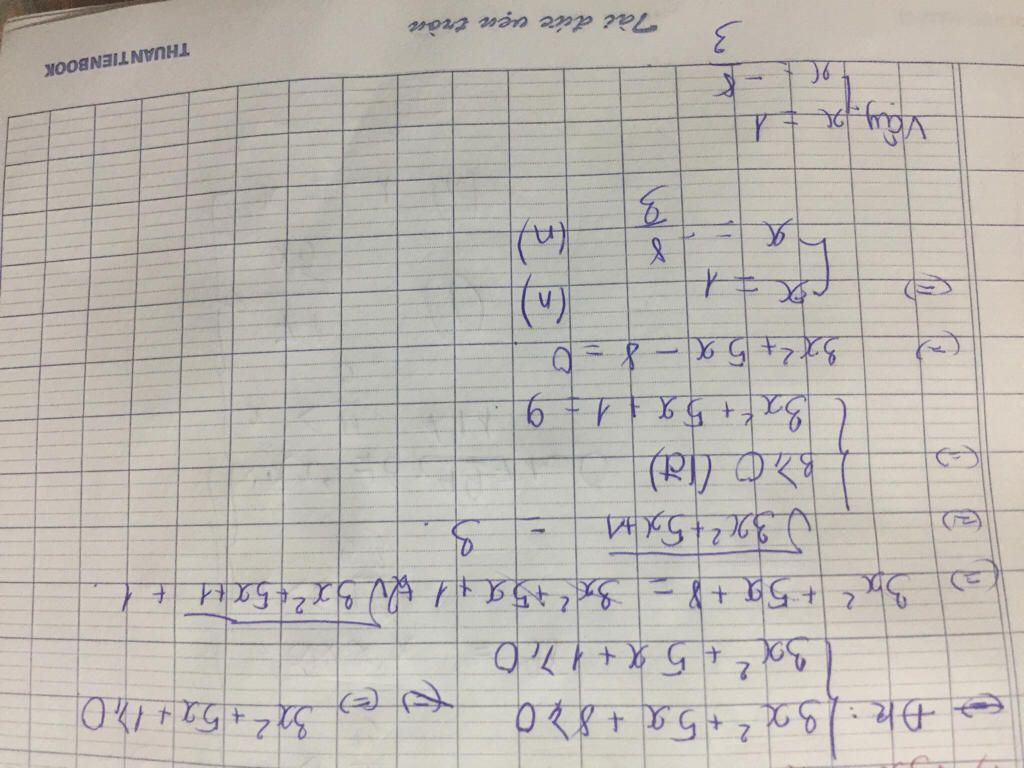 Đk: { 3x² + 5x + 8 ≥ 0 (=) (=) 3x² + 5x + 1 ≥ 0
3x² + 5x + 1 ≥ 0
(=) 3x² + 5x + 8 = 3x² + 5x + 1 + 2√3x² + 5x + 1 + 1
(=) √3x² + 5x + 1 = 3
(=) { 3 ≥ 0 (lđ)
3x² + 5x + 1 = 9
(=) 3x² + 5x - 8 = 0
(=) [ x = 1 (n)
x = - 8/3 (n)
Vậy [ x = 1
x = - 8/3
Tài đức vẹn toàn
THUANTIENBOOK